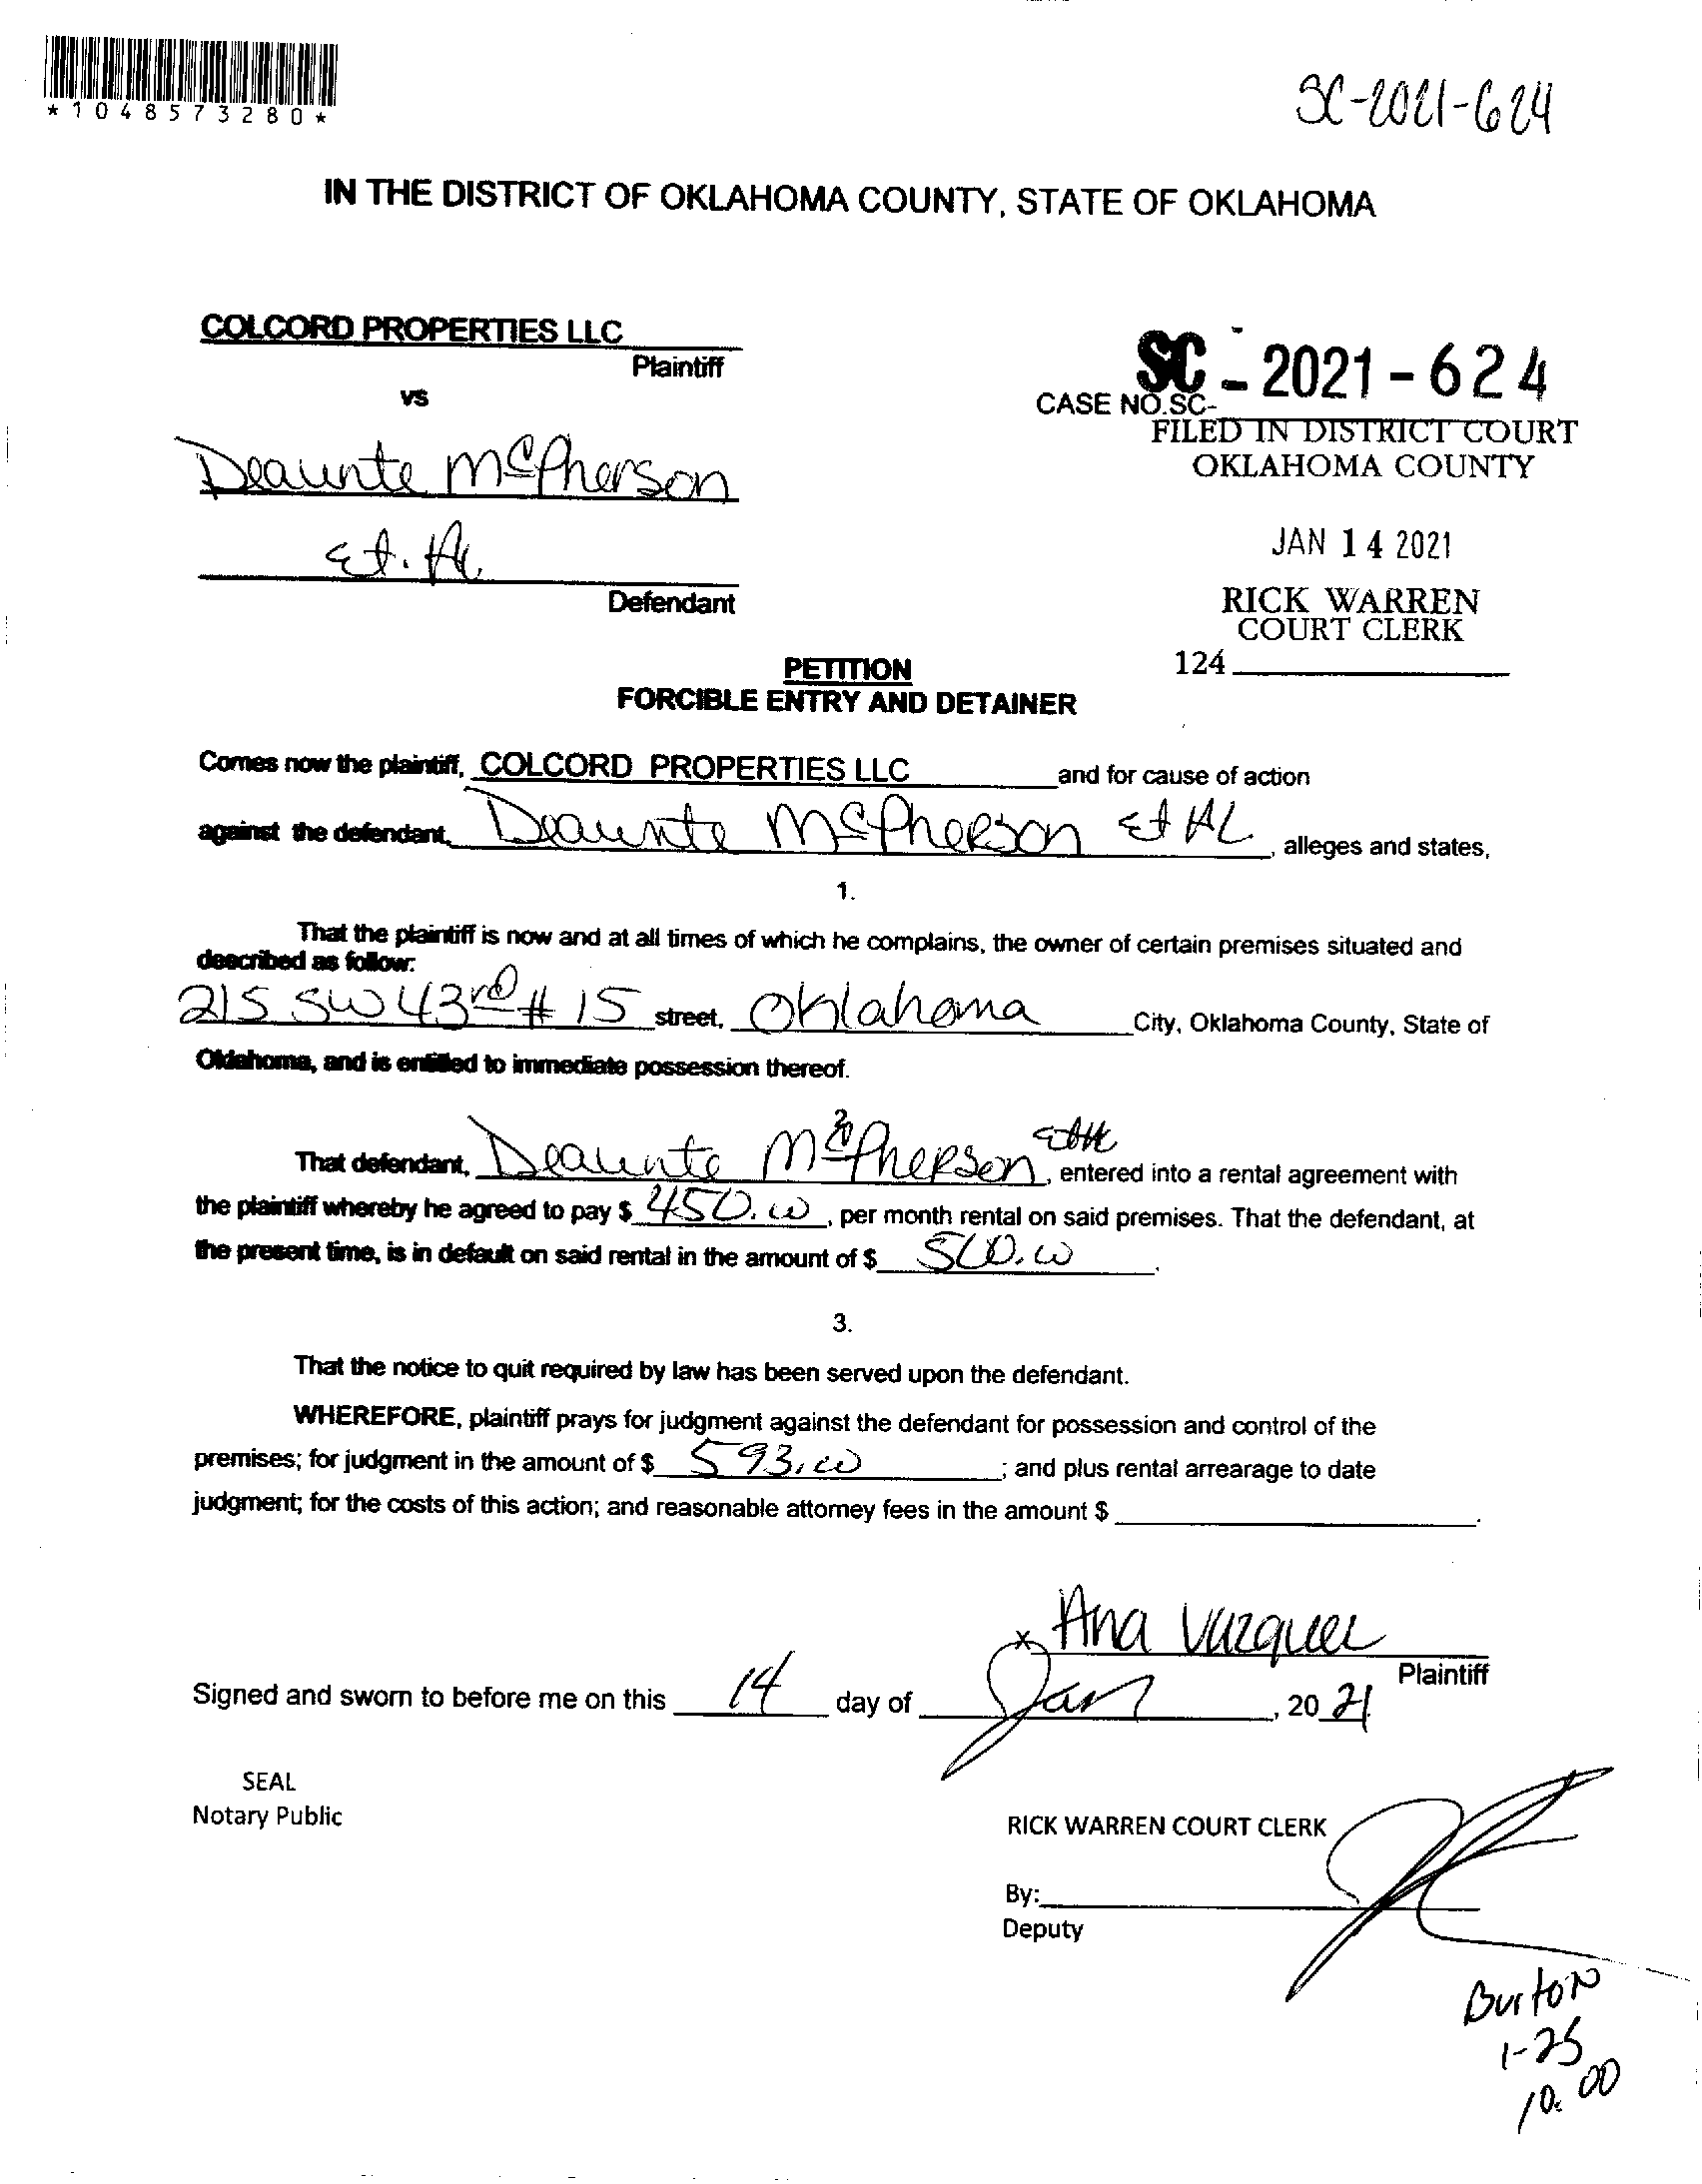 *1048573280*
SC-2021-624
IN THE DISTRICT OF OKLAHOMA COUNTY, STATE OF OKLAHOMA
COLCORD PROPERTIES LLC
Plaintiff
vs
SC - 2021 - 624
CASE NO.SC-
Deaunte McPherson
FILED IN DISTRICT COURT
OKLAHOMA COUNTY
et. Al.
JAN 14 2021
Defendant
RICK WARREN
COURT CLERK
124
PETITION
FORCIBLE ENTRY AND DETAINER
Comes now the plaintiff, COLCORD PROPERTIES LLC and for cause of action
against the defendant, Deaunte McPherson et AL, alleges and states,
1.
That the plaintiff is now and at all times of which he complains, the owner of certain premises situated and
described as follow:
215 SW 43rd # 15 street, Oklahoma City, Oklahoma County, State of
Oklahoma, and is entitled to immediate possession thereof.
2
That defendant, Deaunte McPherson et Al, entered into a rental agreement with
the plaintiff whereby he agreed to pay $ 450.00, per month rental on said premises. That the defendant, at
the present time, is in default on said rental in the amount of $ .
3.
That the notice to quit required by law has been served upon the defendant.
WHEREFORE, plaintiff prays for judgment against the defendant for possession and control of the
premises; for judgment in the amount of $ 593.00; and plus rental arrearage to date
judgment; for the costs of this action; and reasonable attorney fees in the amount $ .
x Ana Vazquez
Plaintiff
Signed and sworn to before me on this 14 day of Jan, 2021.
SEAL
Notary Public
RICK WARREN COURT CLERK
By:
Deputy
Burton
1-25
10:00